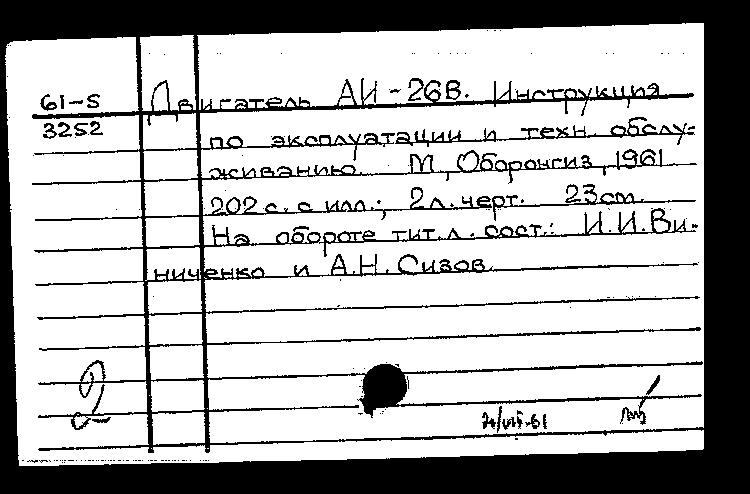 61-5
3252
Двигатель АИ-26В. Инструкция
по эксплуатации и техн. обслу-
живанию. М., Оборонгиз, 1961
202 с. с илл.; 2 л. черт. 23 см.
На обороте тит. л. сост.: И.И. Ви-
ниченко и А.Н. Сизов.
2